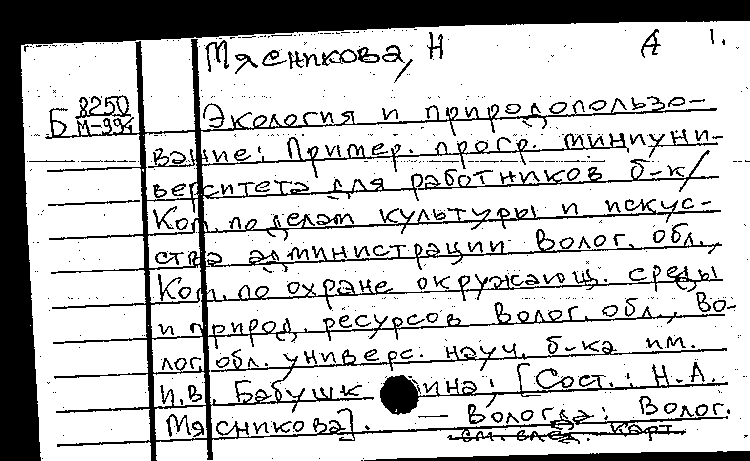 Мясникова, Н А 1.
Б 8250
М-994
Экология и природопользо-
вание: Пример. прогр. миниуни-
верситета для работников б-к/
Ком. по делам культуры и искус-
ства администрации Волог. обл.,
Ком. по охране окружающ. среды
и природ. ресурсов Волог. обл., Во-
лог. обл. универс. науч. б-ка им.
И.В. Бабушкина; [Сост.: Н.А.
Мясникова]. — Вологда: Волог.
см. след. карт.